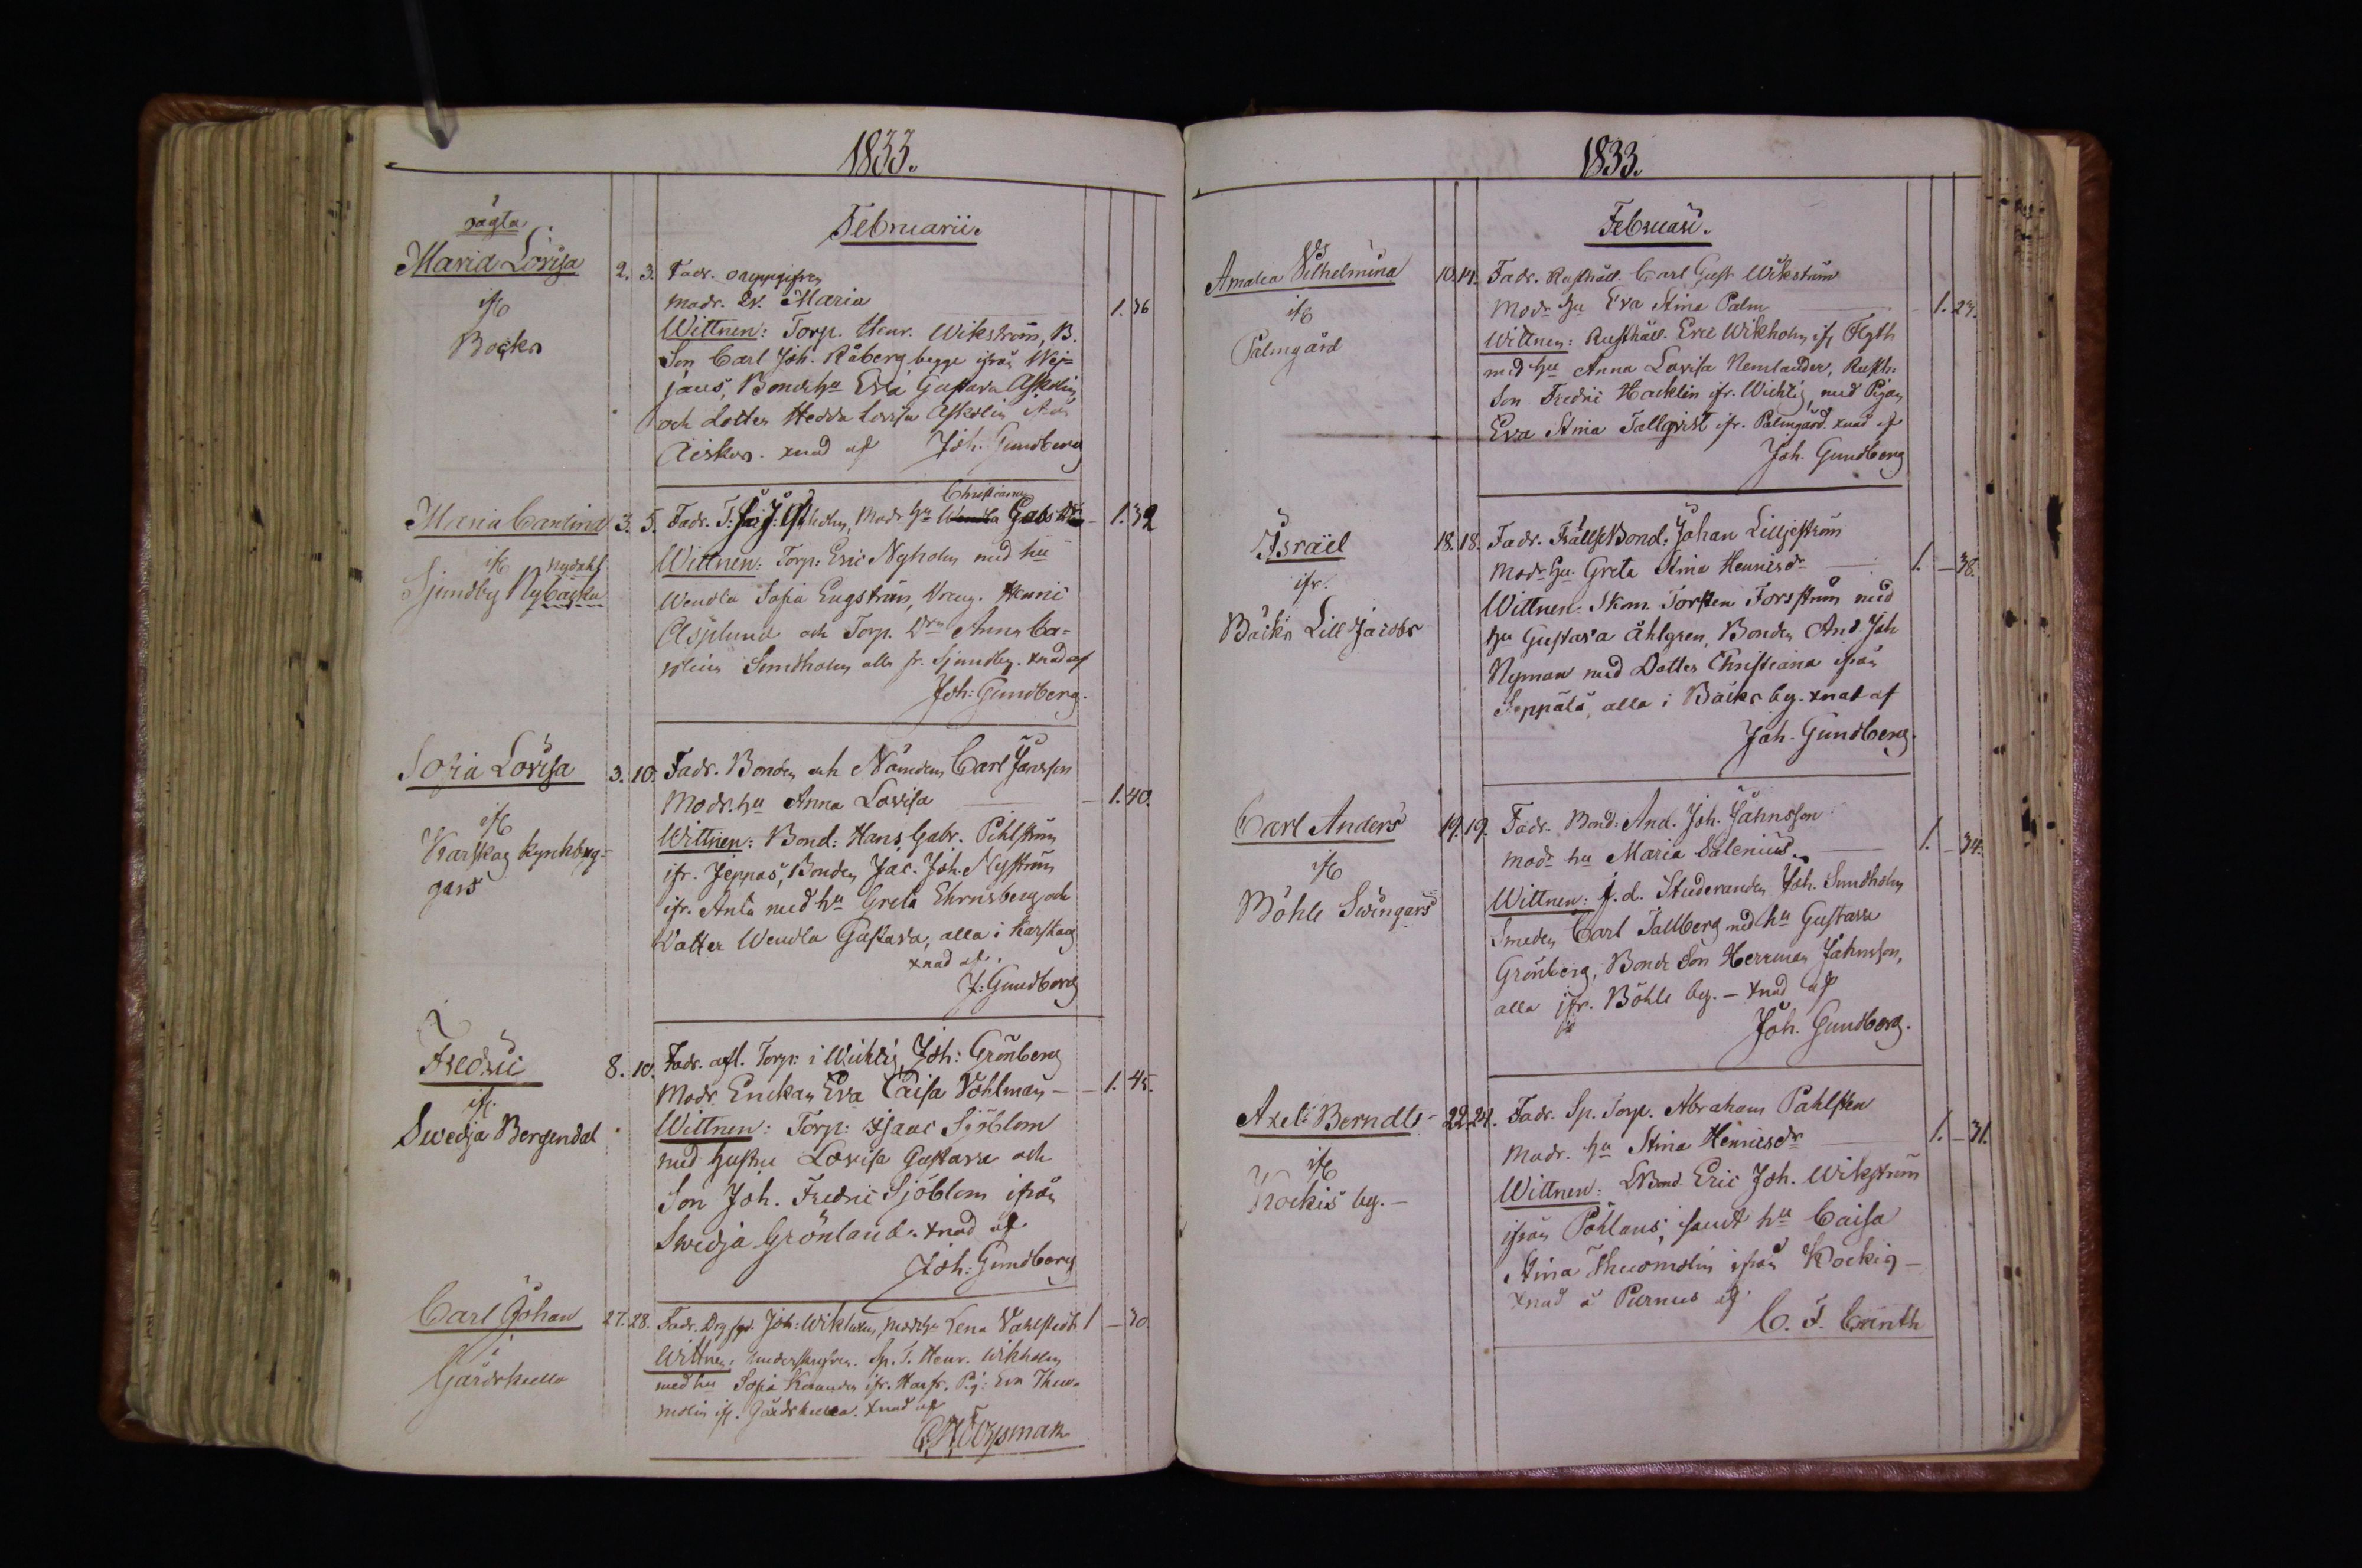 1833.
Februarii.
oägta
Maria Lovisa 2. 3. Fadr. oauppgifven
ifr Modr. Qv. Maria 1. 36
Bäcks Wittnen: Torp. Henr. Wikström, B.
Son Carl Joh. Råberg, begge ifrån
Bondehu Eva Gustava Askolin
och Dotter Hedda Lovisa Askolin
xnad af Joh. Gundberg
Christina
Maria Carolina 3. 5. Fadr. Modr hu Wendla 1. 32
ifr Nydahl Wittnen: Torp. Eric Nyholm med hu
Sjundby Nybacka Wendla Sofia Engström, Dreng. Henric
Asplund och Torp. Dr Anna Ca-
rolina Sundholm alla fr. Sjundby. xnad af
Joh: Gundberg.
Sofia Lovisa 3. 10. Fadr. Bonden och Nämdem Carl Jansson
Modr. hu Anna Lovisa 1. 40.
ifr Wittnen: Bond: Hans Gabr. Pihlström
Karskog Kynckbyg- ifr. Jeppas, Bonden Jac. Joh. Nyström
gars ifr. Anta med hu Greta Ehrnsberg och
Dotter Wendla Gustava, alla i Karskog
xnad af.
J: Gundberg
Fredric 8. 10. Fadr. afl. Torp: i Wichtis, Joh: Grönberg
ifr. Modr. Enckan Eva Caisa Wohlman - 1. 45.
Swedja Bergendal Wittnen: Torp: Isaac Sjöblom
med hustru Lovisa Gustava och
Son Joh. Fredric Sjöblom ifrån
Swedja Grönland. xnad af
Joh: Gundberg
Carl Johan 27. 28. Fadr. Joh: Modr hu Lena 1 - 30
i Wittnen: Sp. T. Henr. Wikholm
Gårdskulla med hu Sofia ifr. Pig: Eva
ifr. Gårdskulla. xnad af
1833.
Februarii.
Amalia Wilhelmina 10. 14. Fadr. Rusthåll. Carl Gust. Wikström
ifr Modr hu Eva Stina Palm 1. 27.
Palmgård Wittnen: Rusthåll. Eric Wikholm ifr Flyth
med hu Anna Lovisa Nemlander, Rusth:
Son Fredric Hacklin ifr. Wichtis, med Pigan
Eva Stina Tallqvist ifr. Palmgård. xnad af
Joh. Gundberg
Israël 18. 18. Fadr. FrälseBond: Johan Lilljeström
ifr. Modr hu Greta Stina Henricsdr 1. - 38.
Bäcks Lill Jacobs Wittnen: Skom. Torsten Forsström med
hu Gustava Åhlgren, Bonden And. Joh
Nyman med Dotter Christiana ifrån
Seppälä, alla i Bäcks by. xnad af
Joh. Gundberg.
Carl Anders 19. 19. Fadr. Bond: And. Joh. Jahnsson
ifr Modr hu Maria Dalenius. 1. - 34.
Böhle Svingars Wittnen: f.d. Studeranden Joh. Sundholm
Smeden Carl Tallberg med hu Gustava
Grönberg, Bonde Son Herrman Jahnsson,
alla ifr. Böhle by. - xnad af
Joh. Gundberg.
Axel Berndt - 22. 24. Fadr. Sp. Torp. Abraham Pahlsten
ifr Modr. hu Stina Henricsdr 1. - 31.
Kockis by. - Wittnen: Bond. Eric Joh. Wikström
ifrån Påhlans, samt hu Caisa
Stina Thuomolin ifrån Kockis -
xnad å Purnus af
C. F. Corinth